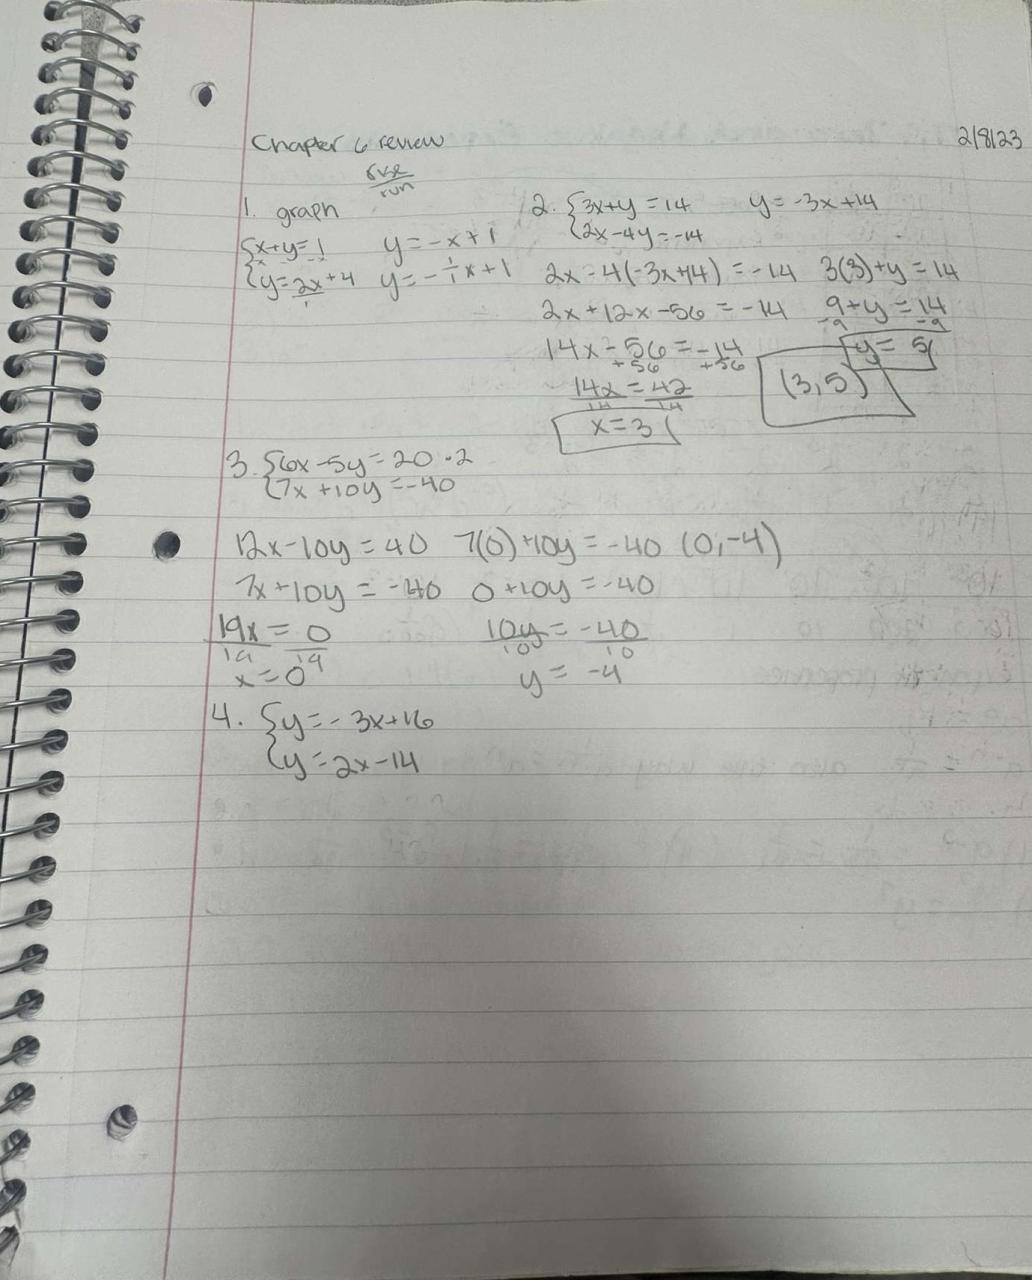 Chapter 6 review
2/8/23
rise
run
1. graph
{x+y=1
-x -x
y=-x+1
{y=2x+4
1
y=-1/1x+1
2. {3x+y=14
y=-3x+14
{2x-4y=-14
2x-4(-3x+14)=-14
2x+12x-56=-14
14x-56=-14
+56 +56
14x=42
14 14
x=3
3(3)+y=14
9+y=14
-9 -9
y=5
(3,5)
3. {6x-5y=20 ·2
{7x+10y=-40
12x-10y=40
7x+10y=-40
19x=0
19 19
x=0
7(0)+10y=-40
0+10y=-40
10y=-40
10 10
y=-4
(0,-4)
4. {y=-3x+16
{y=2x-14